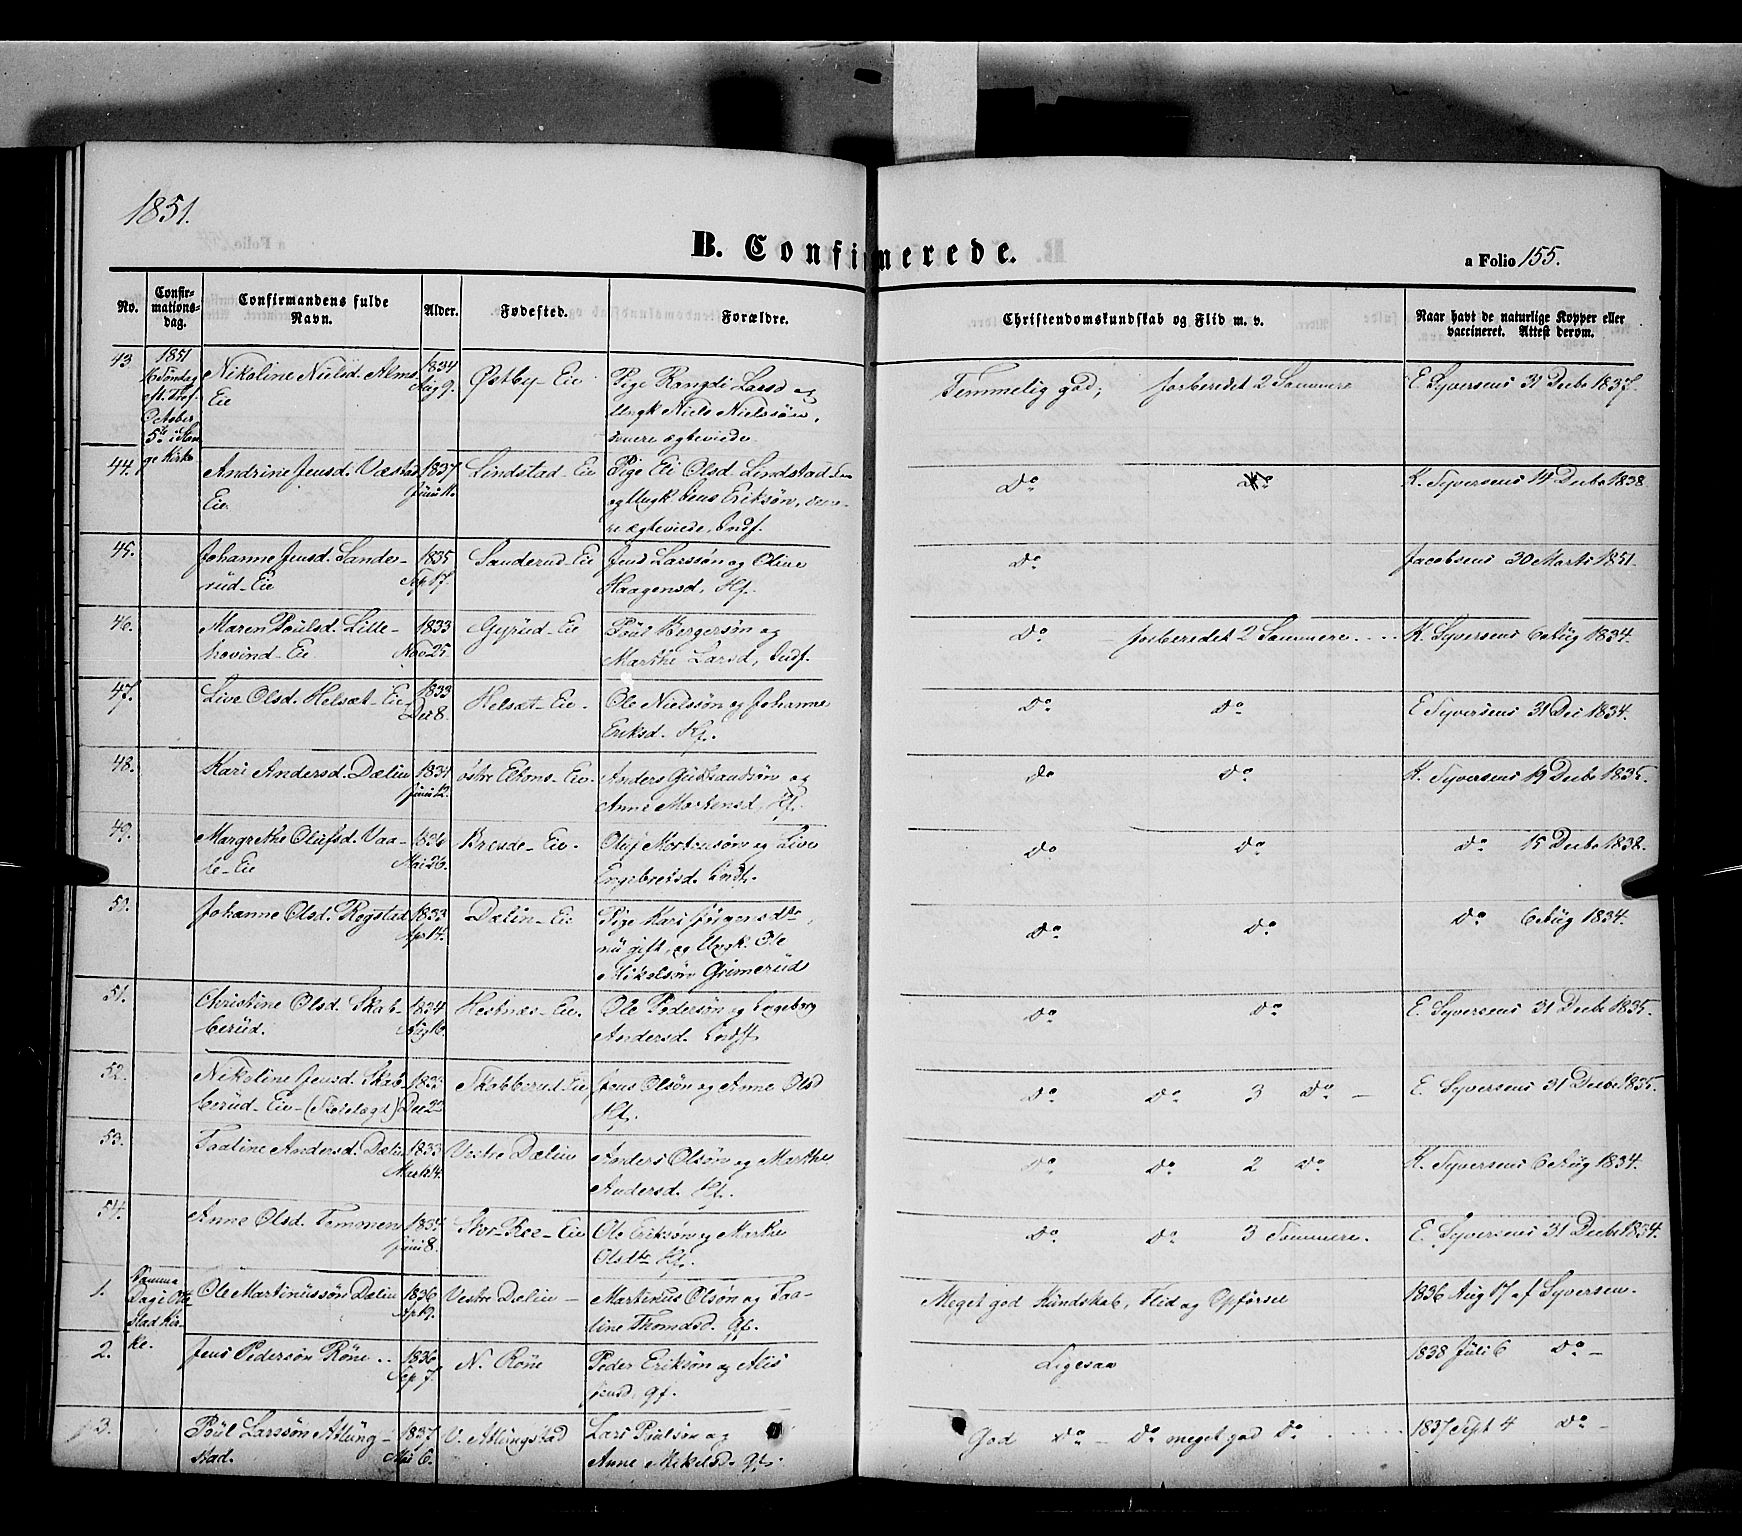 1851.
B. Confirmerede.
a Folio 155.
No.
Confir-
mations-
dag.
Confirmandens fulde
Navn.
Alder.
Fødested.
Forældre.
Christendomskundskab og Flid m. v.
Naar havt de naturlige Kopper eller
vaccineret. Attest derom.
43
1851
Søndag
October
5te i
ge Kirke
Nikoline Nielsd. Alms
Eie
1834
Aug 9.
Østby-Eie
Pige Rangdi Larsd og
Ungk Niels Nielssøn,
senere ægteviede.
Temmelig god; forberedet 2 Sommere
E. Syversens 31 Decbr 1837.
44.
Andrine Jensd. Væstad
Eie
1837
Juni 11.
Lindstad-Eie
Pige Eli Olsd. Lindstad-Eie
og Ungk Jens Eriksøn, sene-
re ægteviede, Indf.
Do Do
K. Syversens 14 Decbr 1838
45.
Johanne Jensd. Sande-
rud-Eie
1835
Sep 17.
Sanderud-Eie
Jens Larssøn og Oline
Haagensd. Hf.
Do
Jacobsens 30 Marts 1851.
46.
Maren Poulsd. Lille-
hovind-Eie
1833
Nov 25.
Gyrud-Eie
Poul Bergersøn og
Marthe Larsd, Indf.
Do - forberedet 2 Sommere. . . .
K. Syversens 6 Aug 1834.
47.
Live Olsd. Helsæt-Eie
1833
Dec 8.
Helsæt-Eie.
Ole Nielsøn og Johanne
Eriksd. Hf.
Do Do
E Syversens 31 Dec 1834.
48.
Kari Andersd. Dælin
1834
Juni 12.
østre -Eie.
Anders Gudbrandsøn og
Anne Mortensd, Hf.
do do
K. Syversens 19 Decbr 1835.
49.
Margrethe Olufsd. Vaa-
le-Eie
1836
Mai 26.
-Eie.
Oluf Mortensøn og Live
Engebretsd. Indf.
do do
do 15 Decbr 1838.
50.
Johanne Olsd. Rogstad
1833
Apr 14.
Dælin-Eie
Pige Kari Jørgensdtr,
nu gift, og Ungk. Ole
Mikelsøn Grimerud
do do
do 6 Aug 1834.
51.
Christine Olsd. Skab-
berud.
1834
Aug 16
Hestnæs-Eie.
Ole Pedersøn og Ingeborg
Andersd. Indft
do do
E. Syversens 31 Decbr 1835.
52.
Nikoline Jensd. Skab-
berud-Eie-
1835
Dec 23
Skabberud-Eie
Jens Olsøn og Anne Olsd
Hf.
do do 3 do -
E. Syversens 31 Decbr 1835.
53.
Taaline Andersd. Dælin
1833
Marts 14.
Vestre Dælin
Anders Olsøn og Marthe
Andersd. Hf.
do do 2 do
K. Syversens 6 Aug 1834.
54.
Anne Olsd. Tomonen
1834
Juni 8.
Stor-Ree-Eie
Ole Eriksøn og Marthe
Olsdtr Hf.
do do 3 Sommere.
E. Syversens 31 Decbr 1834.
1.
Samme
Dag i Otte-
stad Kir-
ke.
Ole Martinussøn Dælin
1836
Apr 19.
Vestre Dælin -
Martinus Olsøn og Taa-
line Thomasd. gf.
Meget god Kundskab, Flid og Opførsel
1836 Aug 17 af Syversen.
2.
Jens Pedersøn Røne . .
1836
Sep 7.
N. Røne
Peder Eriksøn og Alis
Jensd. gf.
Ligesaa
1838 Juli 6 do -
3.
Poul Larssøn Atlung-
stad.
1837
Mai 6.
V. Atlungstad
Lars Poulsøn og
Anne Mikelsd. gf.
God do - do meget god do . . . . .
1837 Sept 4 do -